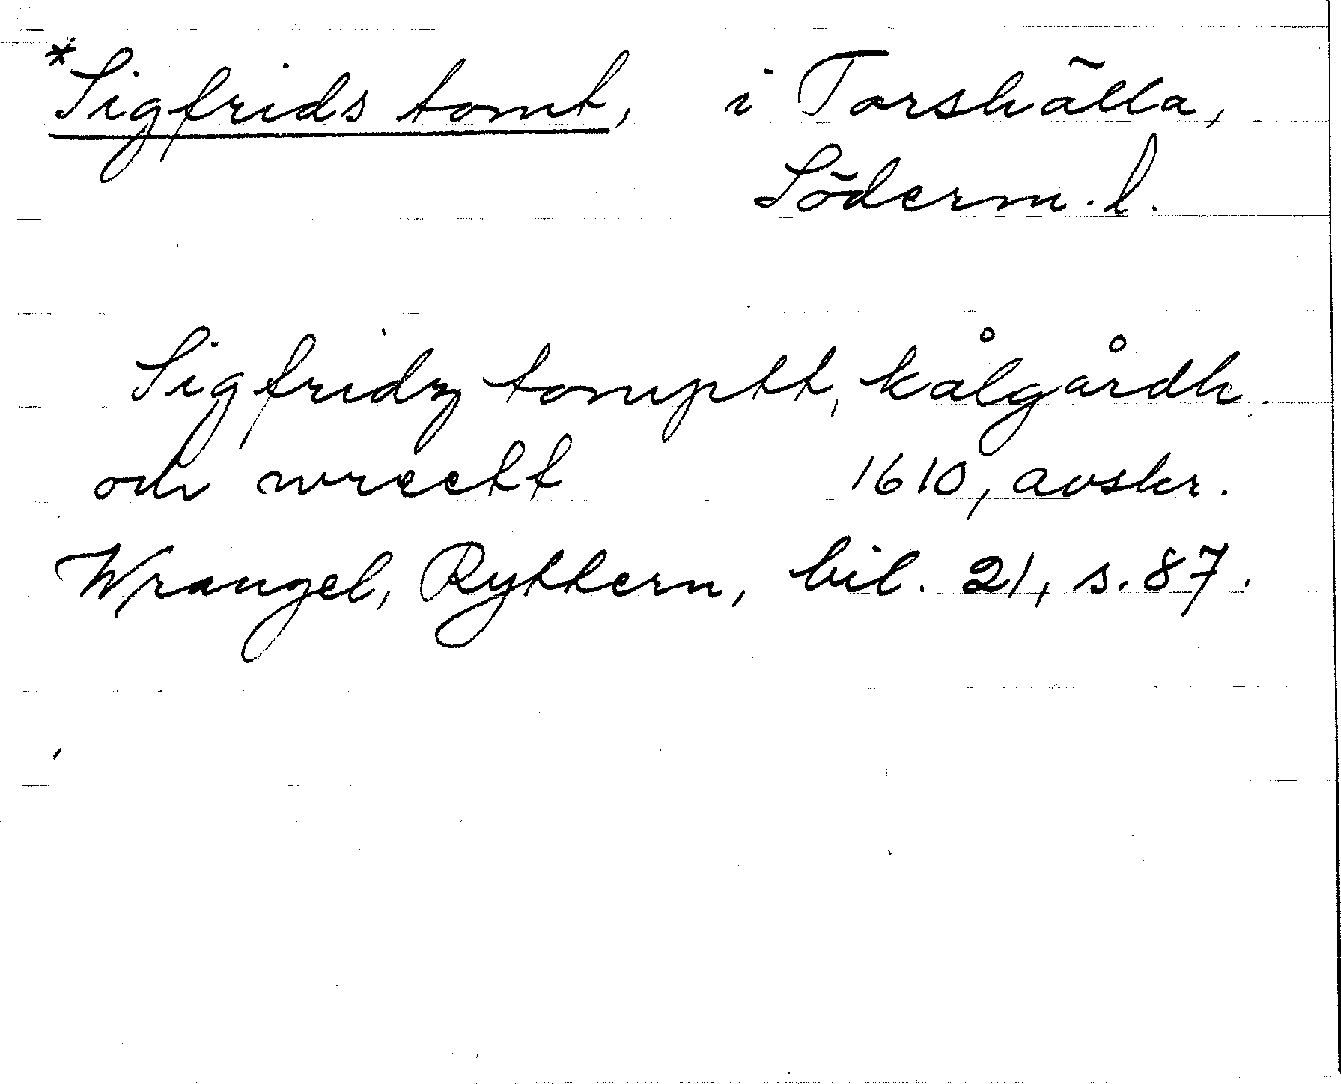 *Sigfrids tomt, i Torshälla,
Söderm. l.
Sigfridz tomptt, kålgårdh
och wreett 1610, avskr.
Wrangel, Ryttern, bil. 21, s. 87.